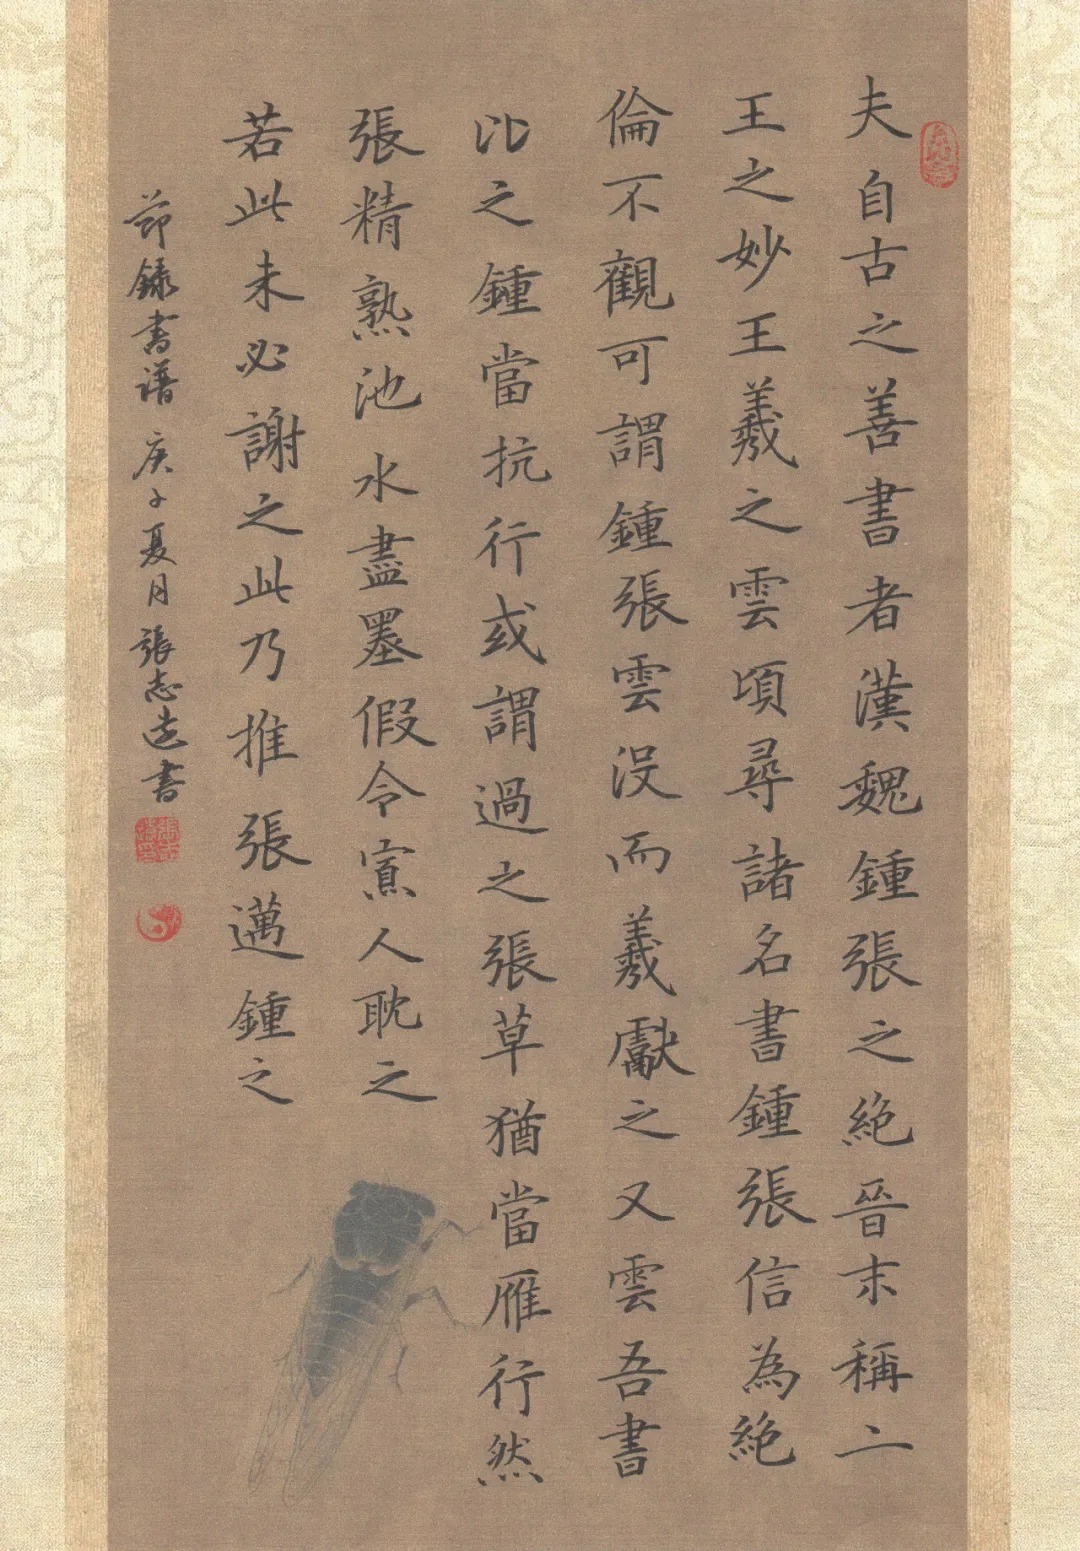 夫自古之善書者漢魏鍾張之絶晉末稱二
王之妙王羲之雲頃尋諸名書鍾張信為絶
倫不觀可謂鍾張雲没而羲獻之又雲吾書
比之鍾當抗行或謂過之張草猶當雁行然
張精熟池水盡墨假令寡人耽之
若此未必謝之此乃推張邁鍾之
節録書譜 庚子夏月 張志造書